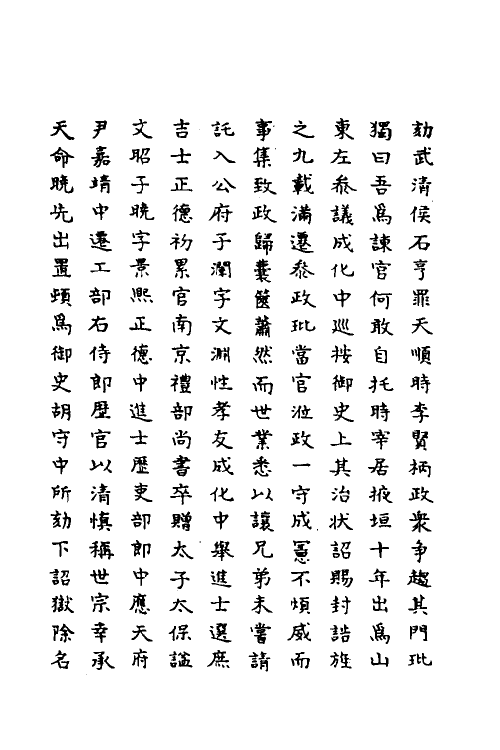 劾武清侯石亨罪天順時李賢柄政衆争趨其門玭
獨曰吾爲諫官何敢自托時宰居掖垣十年出爲山
東左叅議成化中巡按御史上其治狀詔賜封誥旌
之九載滿遷叅政玭當官涖政一守成憲不煩威而
事集致政歸囊篋蕭然而世業悉以讓兄弟未嘗請
託入公府子潤字文淵性孝友成化中舉進士選庶
吉士正德初累官南京禮部尚書卒贈太子太保謚
文昭子曉字景熙正德中進士歷吏部郎中應天府
尹嘉靖中遷工部右侍郎歷官以清慎稱世宗幸承
天命曉先出置頓爲御史胡守中所劾下詔獄除名